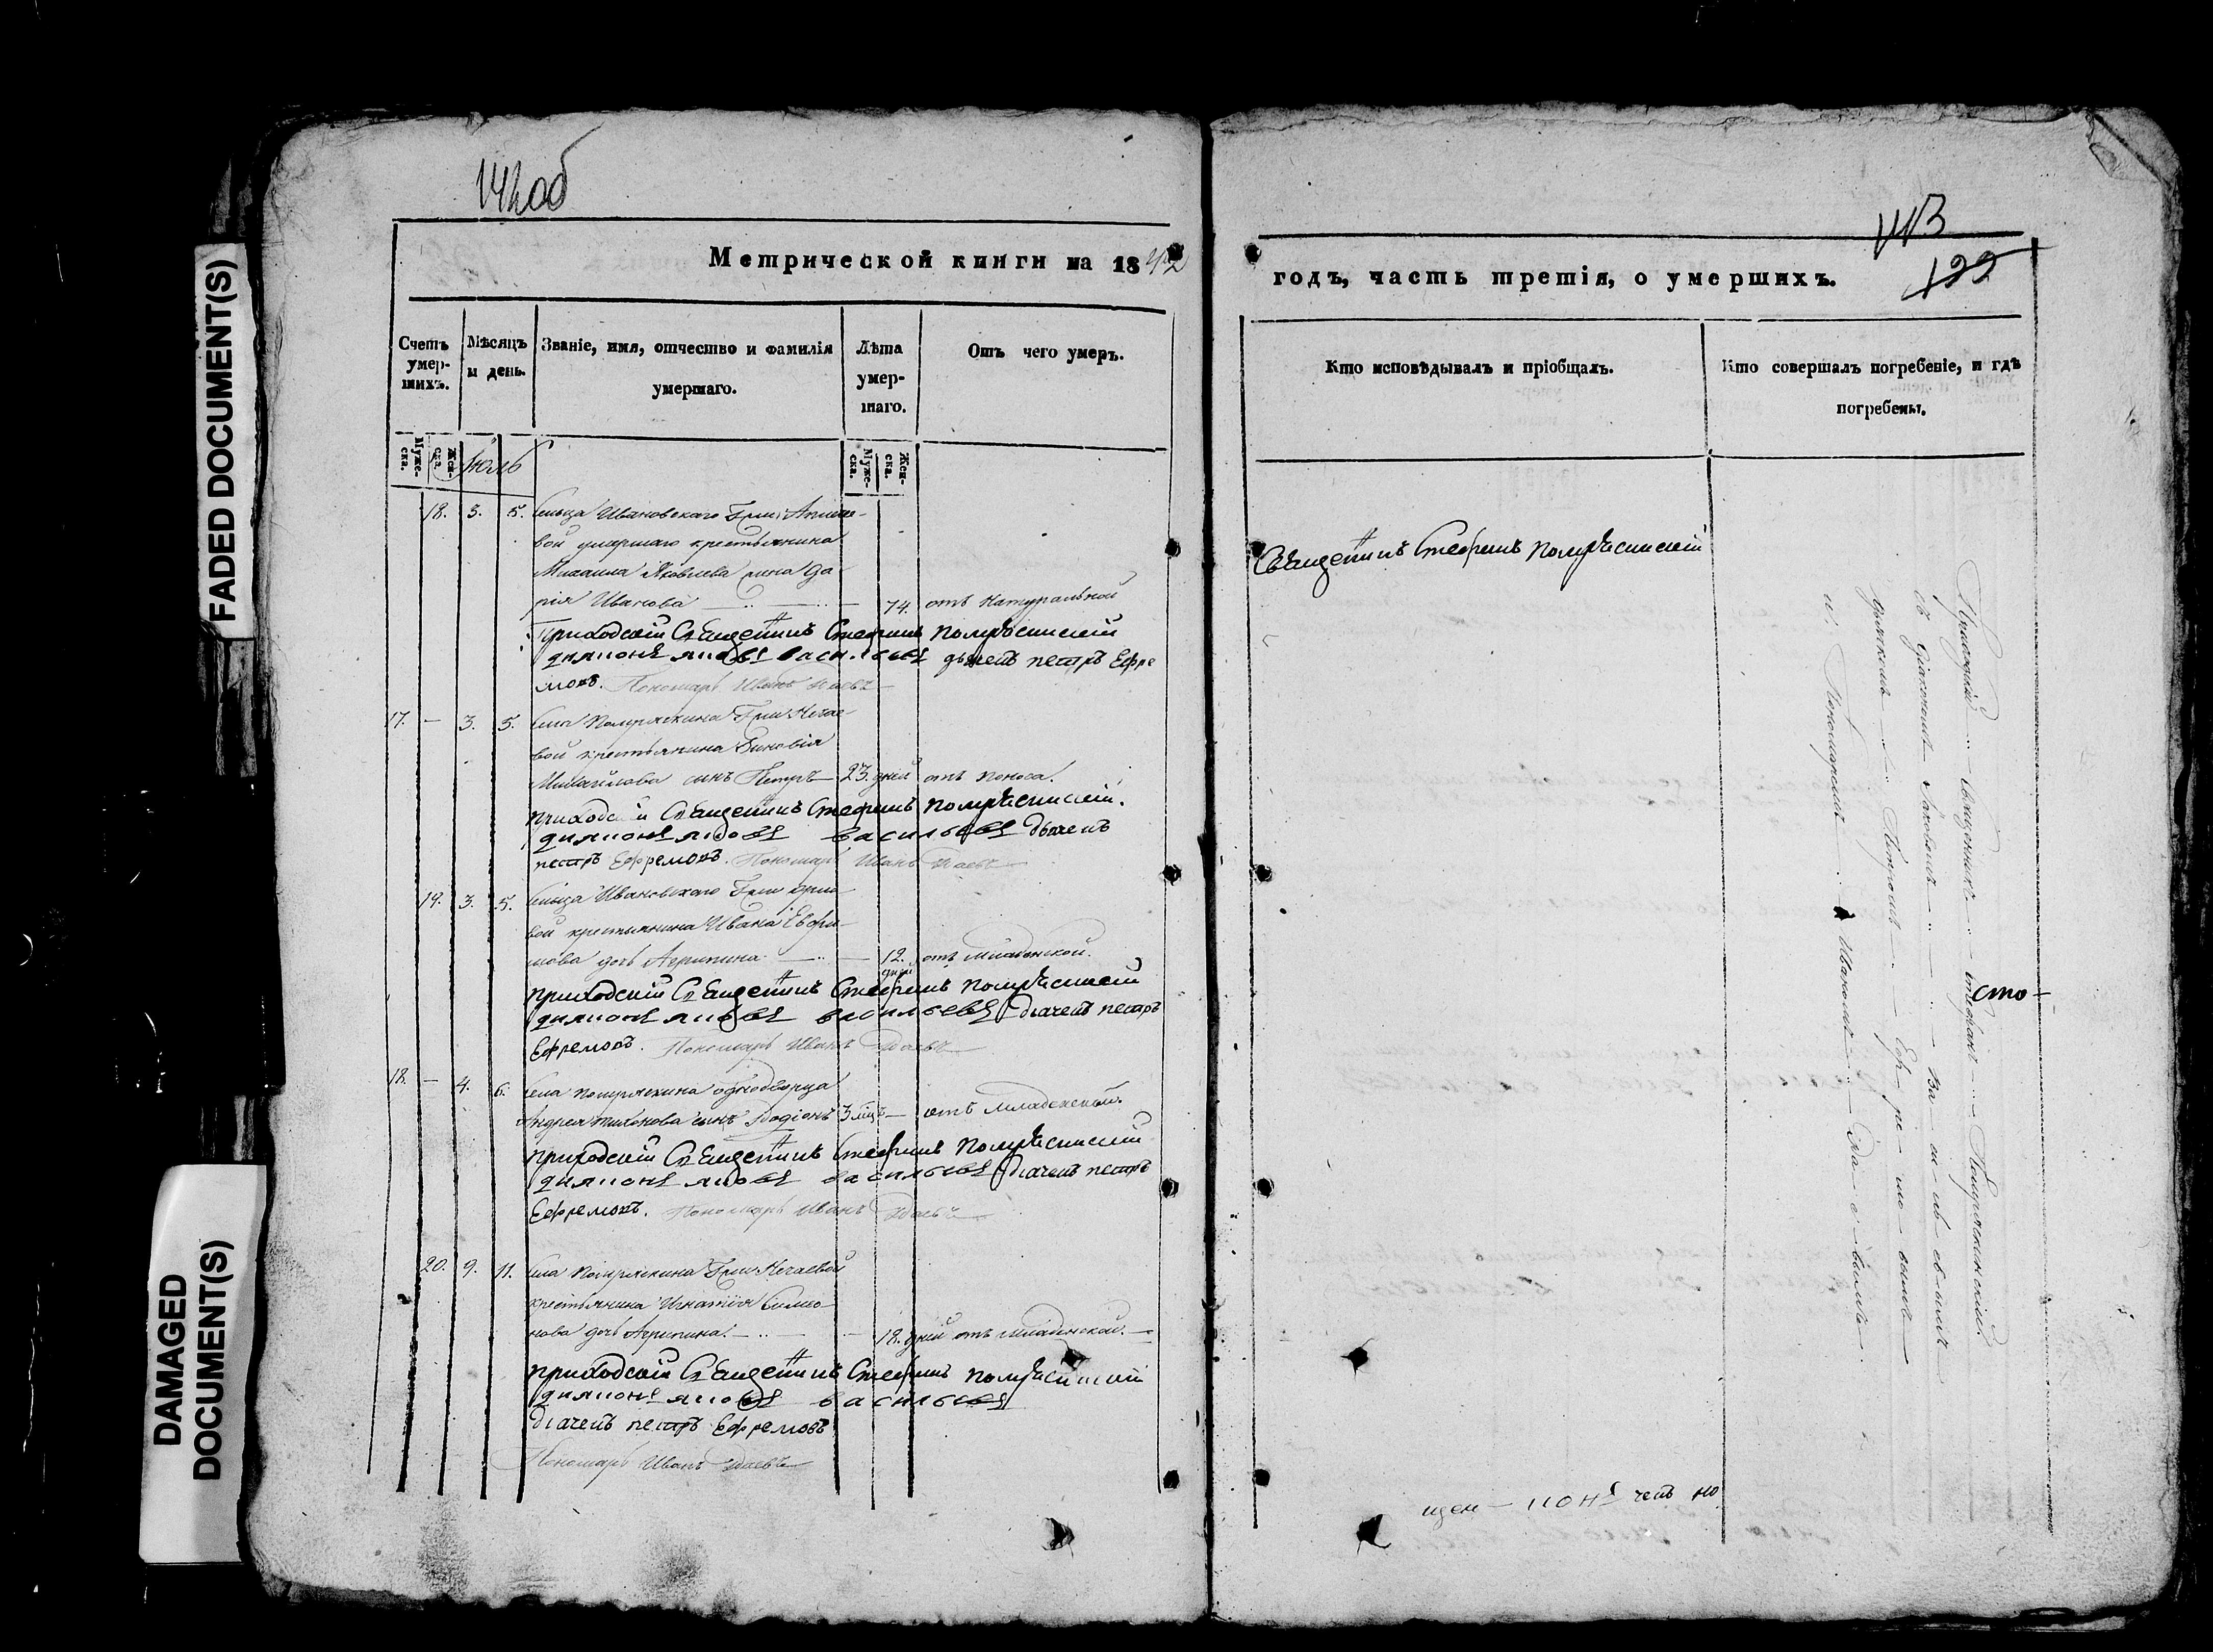 FADED DOCUMENT(S)
DAMAGED
DOCUMENT(S)
142об
Метрической книги на 1842
Счетъ умер-шихъ.
Мѣсяцъ и день.
Званіе, имя, отчество и фамилія умершаго.
Лѣта умер-шаго.
Отъ чего умеръ.
Муже-ска.
Жен-ска.
Июль
Муже-ска.
Жен-ска.
18. 3. 5. сельца Ивановскаго Гжи
вой умершаго крестьянина
Михаила Яковлева жена Да
рія Иванова 74. отъ натуральной
Приходскій Священникъ Стефанъ
диаконъ Яковъ Васильевъ дьячекъ петръ Ефре
мовъ. Пономарь Иванъ
17. — 3. 5. села Гжи Нечае
вой крестьянина Зиновія
Михайлова сынъ Петръ 23. дней отъ поноса.
приходскій Священникъ Стефанъ
диаконъ Яковъ Васильевъ дьячекъ
петръ Ефремовъ. Пономарь Иванъ
19. 3. 5. сельца Ивановскаго Гжи
вой крестьянина Ивана Ефи
мова дочь Агрипина 12. дней отъ младенской.
приходскій Священникъ Стефанъ
диаконъ Яковъ Васильевъ дьячекъ петръ
Ефремовъ. Пономарь Иванъ
18. — 4. 6. села однодворца
Андрея Тихонова сынъ Родіонъ 3 мцъ — отъ младенской.
приходскій Священникъ Стефанъ
диаконъ Яковъ Васильевъ дьячекъ петръ
Ефремовъ. Пономарь Иванъ
20. 9. 11. села Гжи Нечаевой
крестьянина Игнатія Симио
нова дочь Агрипина. 18. дней отъ младенской.
приходскій Священникъ Стефанъ
диаконъ Яковъ Васильевъ
дьячекъ петръ Ефремовъ
Пономарь Иванъ
143
122
годъ, часть третія, о умершихъ.
Кто исповѣдывалъ и пріобщалъ.
Кто совершалъ погребеніе, и гдѣ погребены.
Священникъ Стефанъ
Приходскій Священникъ Стефанъ
съ Діакономъ Іаковомъ Ва си ль ев ымъ
дьячкомъ Петромъ Еф ре мо вымъ
и Пономаремъ Иваномъ
сто-
щен — кон чекъ но